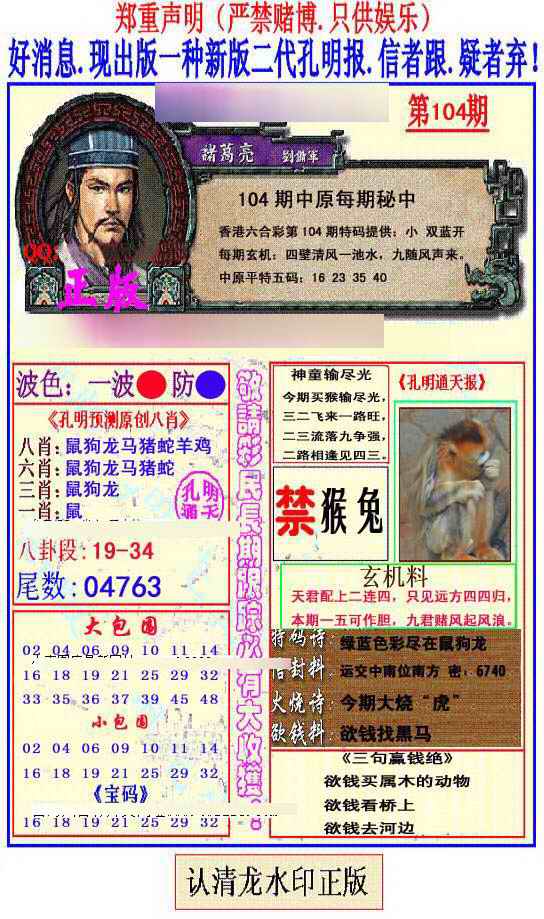 郑重声明（严禁赌博.只供娱乐）
好消息.现出版一种新版二代孔明报.信者跟.疑者弃！
第104期
諸葛亮 劉備軍
104期中原每期秘中
香港六合彩第104期特码提供：小 双蓝开
每期玄机：四壁清风一池水，九随风声来。
中原平特五码：16 23 35 40
QQ
正版
波色：一波 防
《孔明预测原创八肖》
八肖：鼠狗龙马猪蛇羊鸡
六肖：鼠狗龙马猪蛇
三肖：鼠狗龙
一肖：鼠
孔明
通天
八卦段：19-34
尾数：04763
大包围
02 04 06 09 10 11 14
16 18 19 21 25 29 32
33 35 36 37 39 45 48
小包围
02 04 06 09 10 11 14
16 18 19 21 25 29 32
《宝码》
16 18 19 21 25 29 32
敬請彩民長期跟踪必有大收獲！
神童输尽光
今期买猴输尽光，
三二飞来一路旺，
二三流落九争强，
二路相逢见四三。
《孔明通天报》
禁猴兔
玄机料
天君配上二连四，只见远方四四归，
本期一五可作胆，九君赌风起风浪。
特码诗：绿蓝色彩尽在鼠狗龙
信封料：运交中南位南方 密：6740
火烧诗：今期大烧“虎”
欲钱料：欲钱找黑马
《三句赢钱绝》
欲钱买属木的动物
欲钱看桥上
欲钱去河边
认清龙水印正版